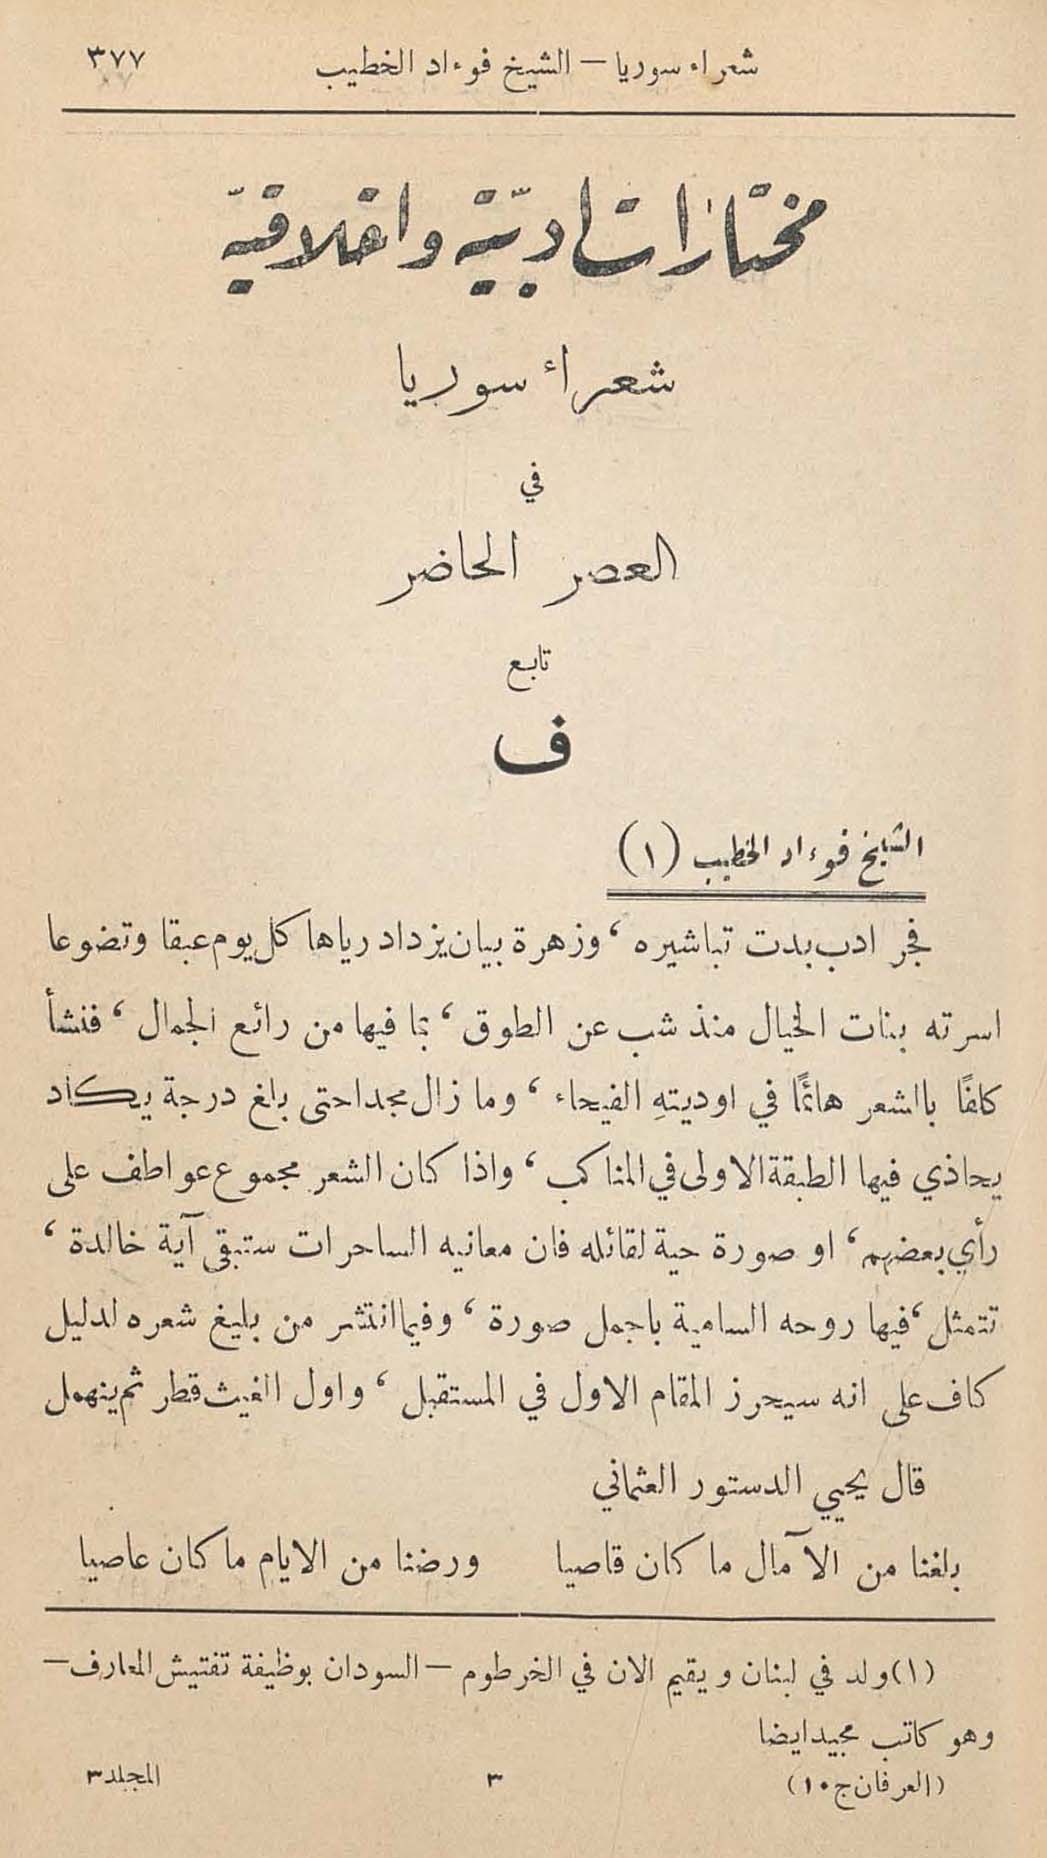 شعراء سوريا – الشيخ فوءاد الخطيب ٣٧٧
مختارات ادبيّة واخلاقيّة
شعراء سوريا
في
العصر الحاضر
تابع
ف
الشيخ فوءاد الخطيب (١)
فجر ادب بدت تباشيره، وزهرة بيان يزداد رياها كل يوم عبقا وتضوعا
اسرته بنات الخيال منذ شب عن الطوق، بما فيها من رائع الجمال، فنشأ
كلفًا بالشعر هائمًا في اوديتهِ الفيحاء، وما زال مجدا حتى بلغ درجة يكاد
يحاذي فيها الطبقة الاولى في المناكب، واذا كان الشعر مجموع عواطف على
رأي بعضهم، او صورة حية لقائله فان معانيه الساحرات ستبقى آية خالدة،
تتمثل، فيها روحه السامية باجمل صورة، وفيما انتشر من بليغ شعره لدليل
كاف على انه سيحرز المقام الاول في المستقبل، واول الغيث قطر ثم ينهمل
قال يحيي الدستور العثماني
بلغنا من الآمال ما كان قاصيا ورضنا من الايام ما كان عاصيا
(١) ولد في لبنان ويقيم الان في الخرطوم – السودان بوظيفة تفتيش المعارف –
وهو كاتب مجيد ايضا
(العرفان ج ١٠) ٣ المجلد ٣